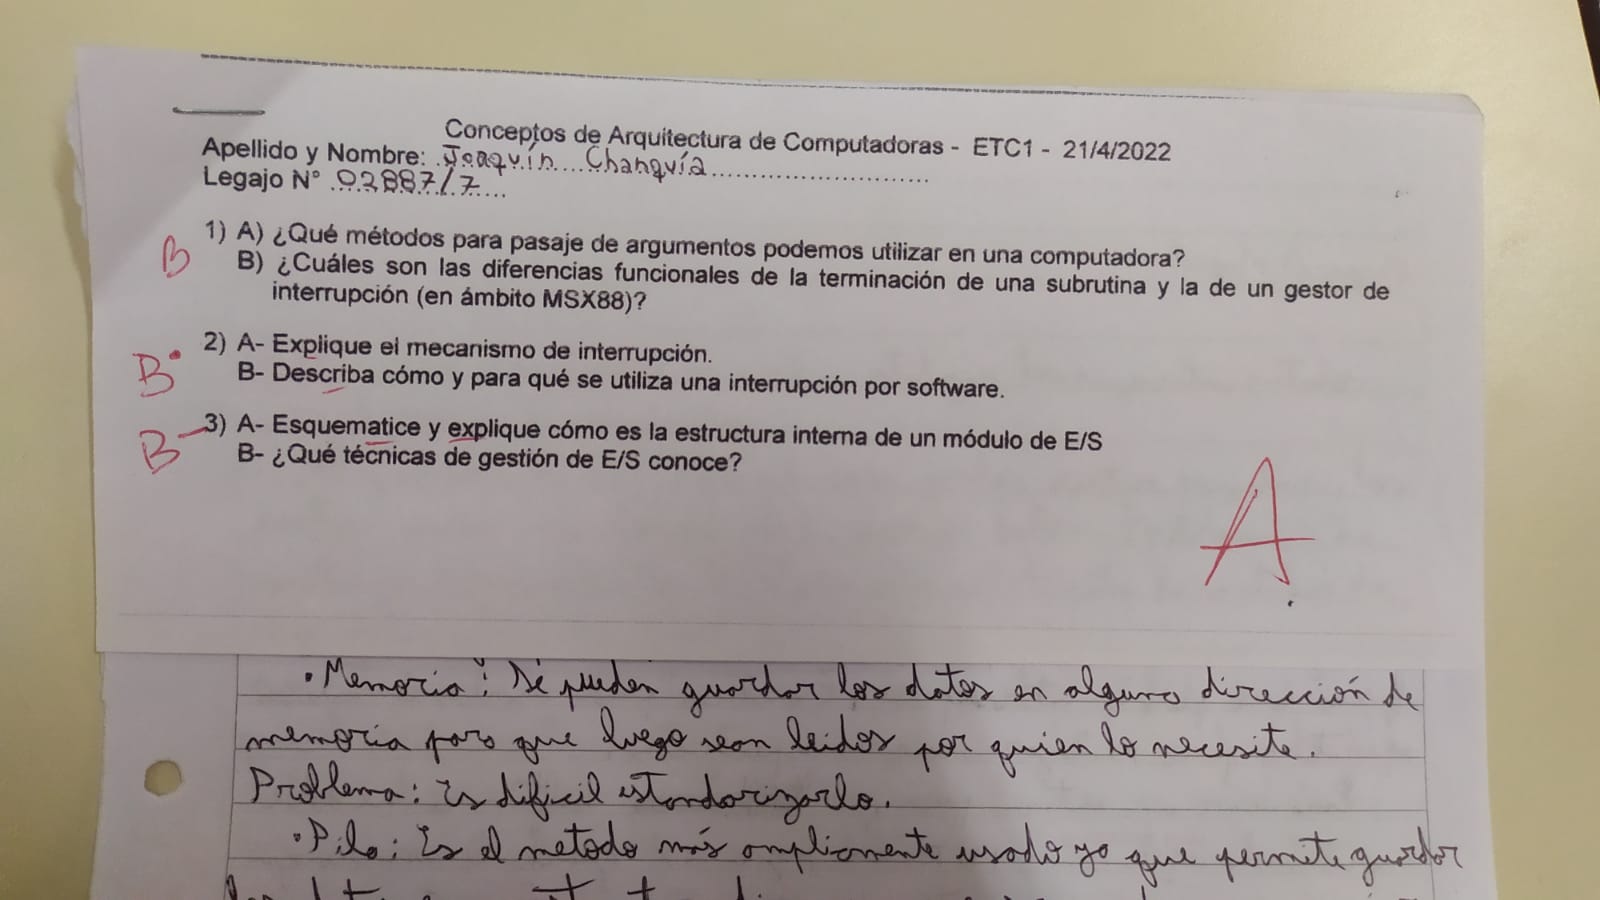 Conceptos de Arquitectura de Computadoras - ETC1 - 21/4/2022
Apellido y Nombre: Joaquín Changuía
Legajo N° 02887/7
1) A) ¿Qué métodos para pasaje de argumentos podemos utilizar en una computadora?
B B) ¿Cuáles son las diferencias funcionales de la terminación de una subrutina y la de un gestor de
interrupción (en ámbito MSX88)?
2) A- Explique el mecanismo de interrupción.
B B- Describa cómo y para qué se utiliza una interrupción por software.
3) A- Esquematice y explique cómo es la estructura interna de un módulo de E/S
B- B- ¿Qué técnicas de gestión de E/S conoce?
A
• Memoria: Se pueden guardar los datos en alguna dirección de
memoria para que luego sean leidos por quien lo necesite.
Problema: Es dificil estandarizarlo.
• Pila: Es el metodo más ampliamente usado ya que permite guardar